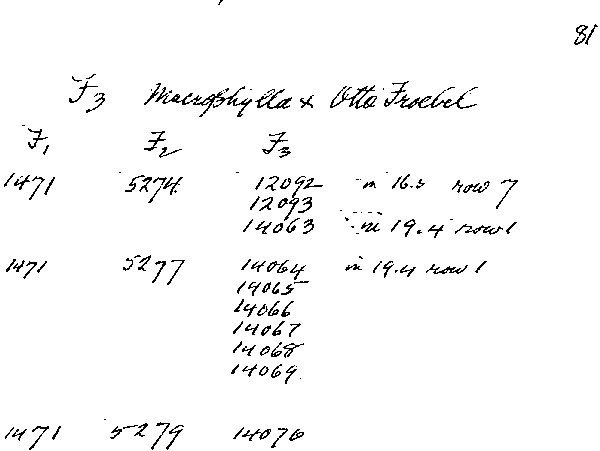 81
F3 Macrophylla x Otto Froebel
F1 F2 F3
1471 5274 12092 in 16.3 row 7
12093
14063 in 19.4 row 1
1471 5277 14064 in 19.4 row 1
14065
14066
14067
14068
14069
1471 5279 14070